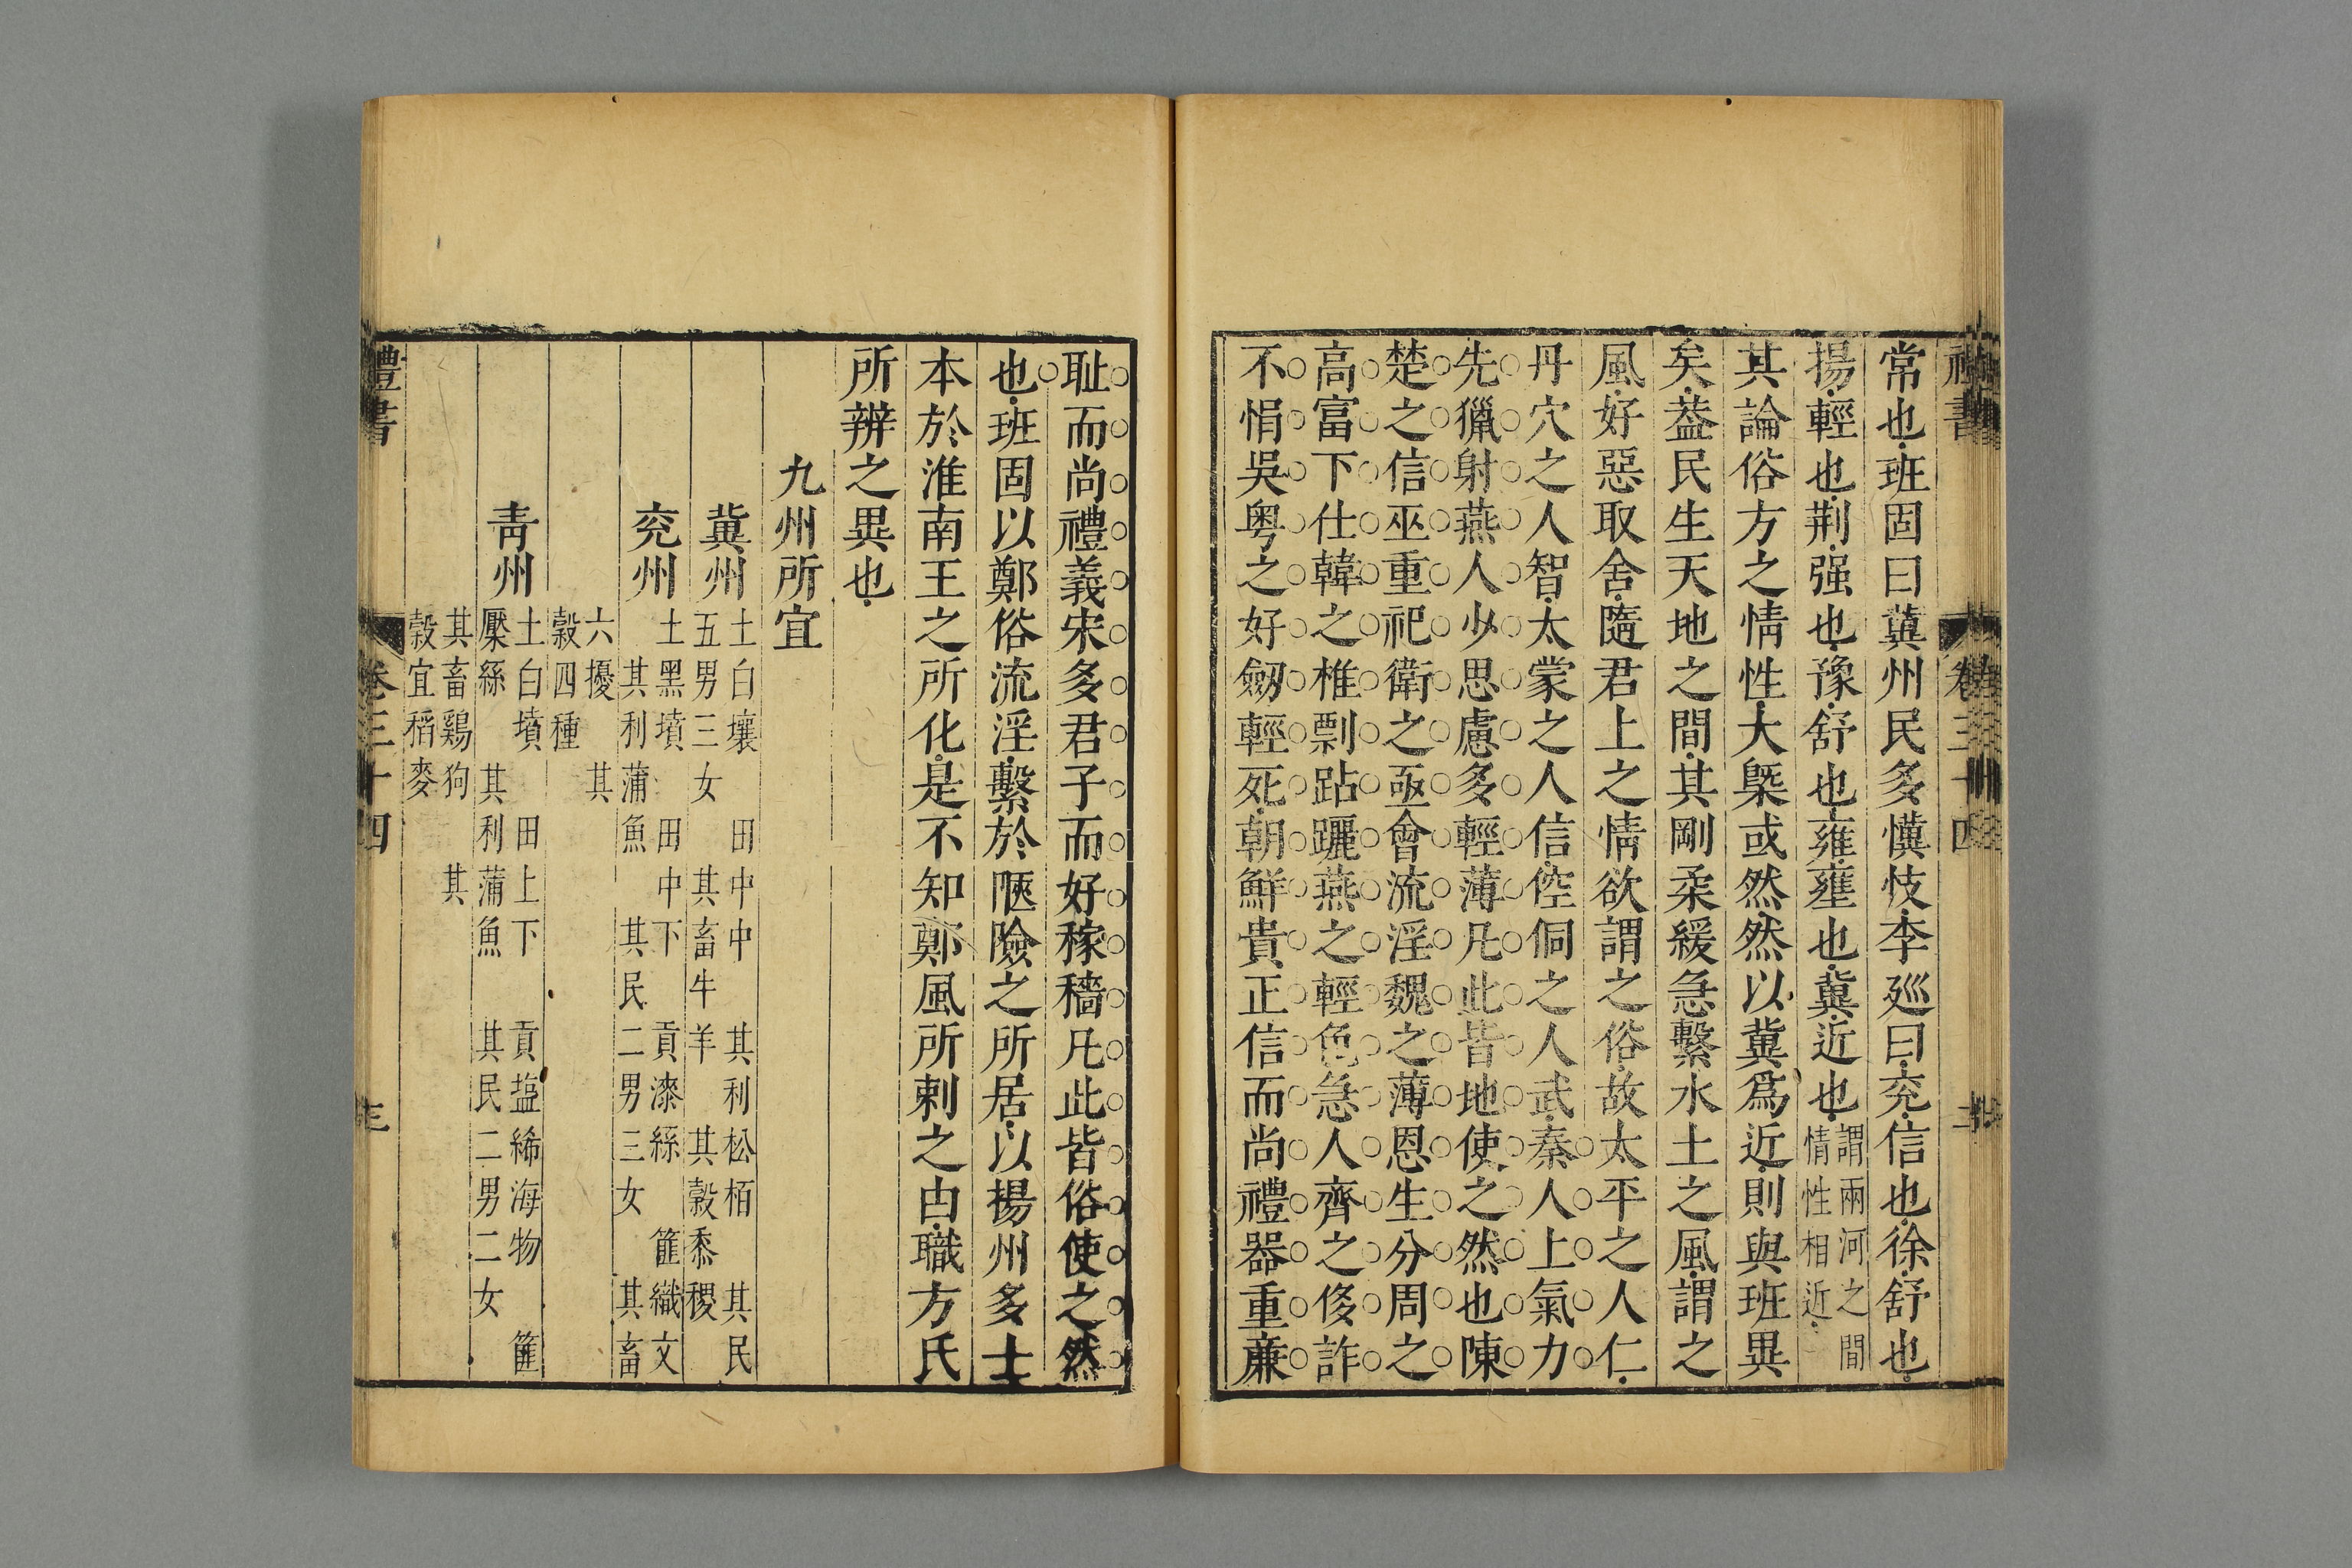 禮書
卷三十四
常也班固曰冀州民多懻忮李廵曰兖信也徐舒也
揚輕也荆强也豫舒也雍壅也冀近也謂兩河之間
情性相近
其論俗方之情性大槩或然然以冀爲近則與班異
矣葢民生天地之間其剛柔緩急繫水土之風謂之
風好惡取舍隨君上之情欲謂之俗故太平之人仁
丹穴之人智太蒙之人信倥侗之人武秦人上氣力
先獵射燕人少思慮多輕薄凡此皆地使之然也陳
楚之信巫重祀衛之亟會流淫魏之薄恩生分周之
高富下仕韓之椎剽跕躧燕之輕急人齊之侈詐
不悁吳粤之好劒輕死朝鮮貴正信而尚禮器重亷
耻而尚禮義宋多君子而好稼穡凡此皆俗使之然
也班固以鄭俗流淫繫於陿險之所居以揚州多士
本於淮南王之所化是不知鄭風所刺之由職方氏
所辨之異也
九州所宜
冀州土白壤 田中中 其利松栢 其民
五男三女 其畜牛羊 其穀黍稷
兖州土黑墳 田中下 貢漆絲 篚織文
其利蒲魚 其民二男三女 其畜
六擾 其
穀四種
青州土白墳 田上下 貢塩絺海物 篚
檿絲 其利蒲魚 其民二男二女
其畜鷄狗 其
穀宜稻麥
禮書
卷三十四
三